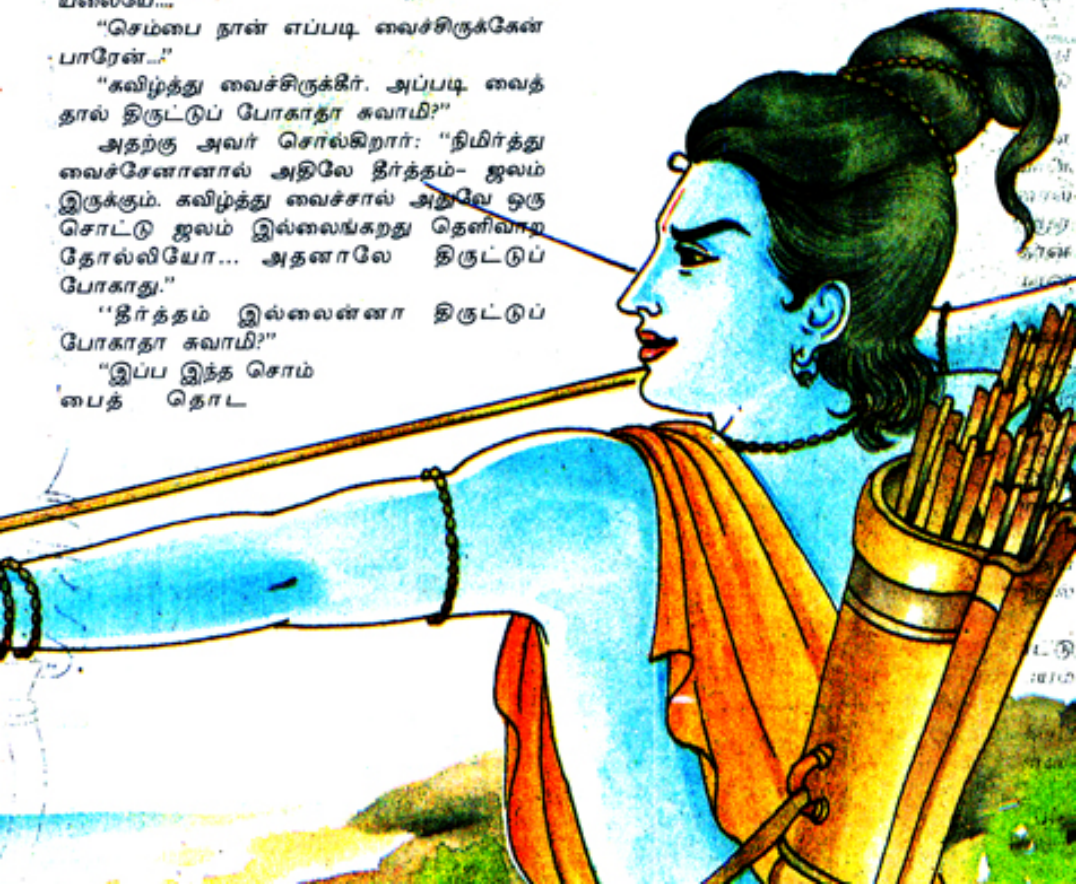 யலையே....
“செம்பை நான் எப்படி வைச்சிருக்கேன்
பாரேன்...”
“கவிழ்த்து வைச்சிருக்கீர். அப்படி வைத்
தால் திருட்டுப் போகாதா சுவாமி?”
அதற்கு அவர் சொல்கிறார்: “நிமிர்த்து
வைச்சேனானால் அதிலே தீர்த்தம்– ஜலம்
இருக்கும். கவிழ்த்து வைச்சால் அதுவே ஒரு
சொட்டு ஜலம் இல்லைங்கறது தெளிவாற
தோல்லியோ... அதனாலே திருட்டுப்
போகாது.”
‘‘தீர்த்தம் இல்லைன்னா திருட்டுப்
போகாதா சுவாமி?”
“இப்ப இந்த சொம்
பைத் தொட